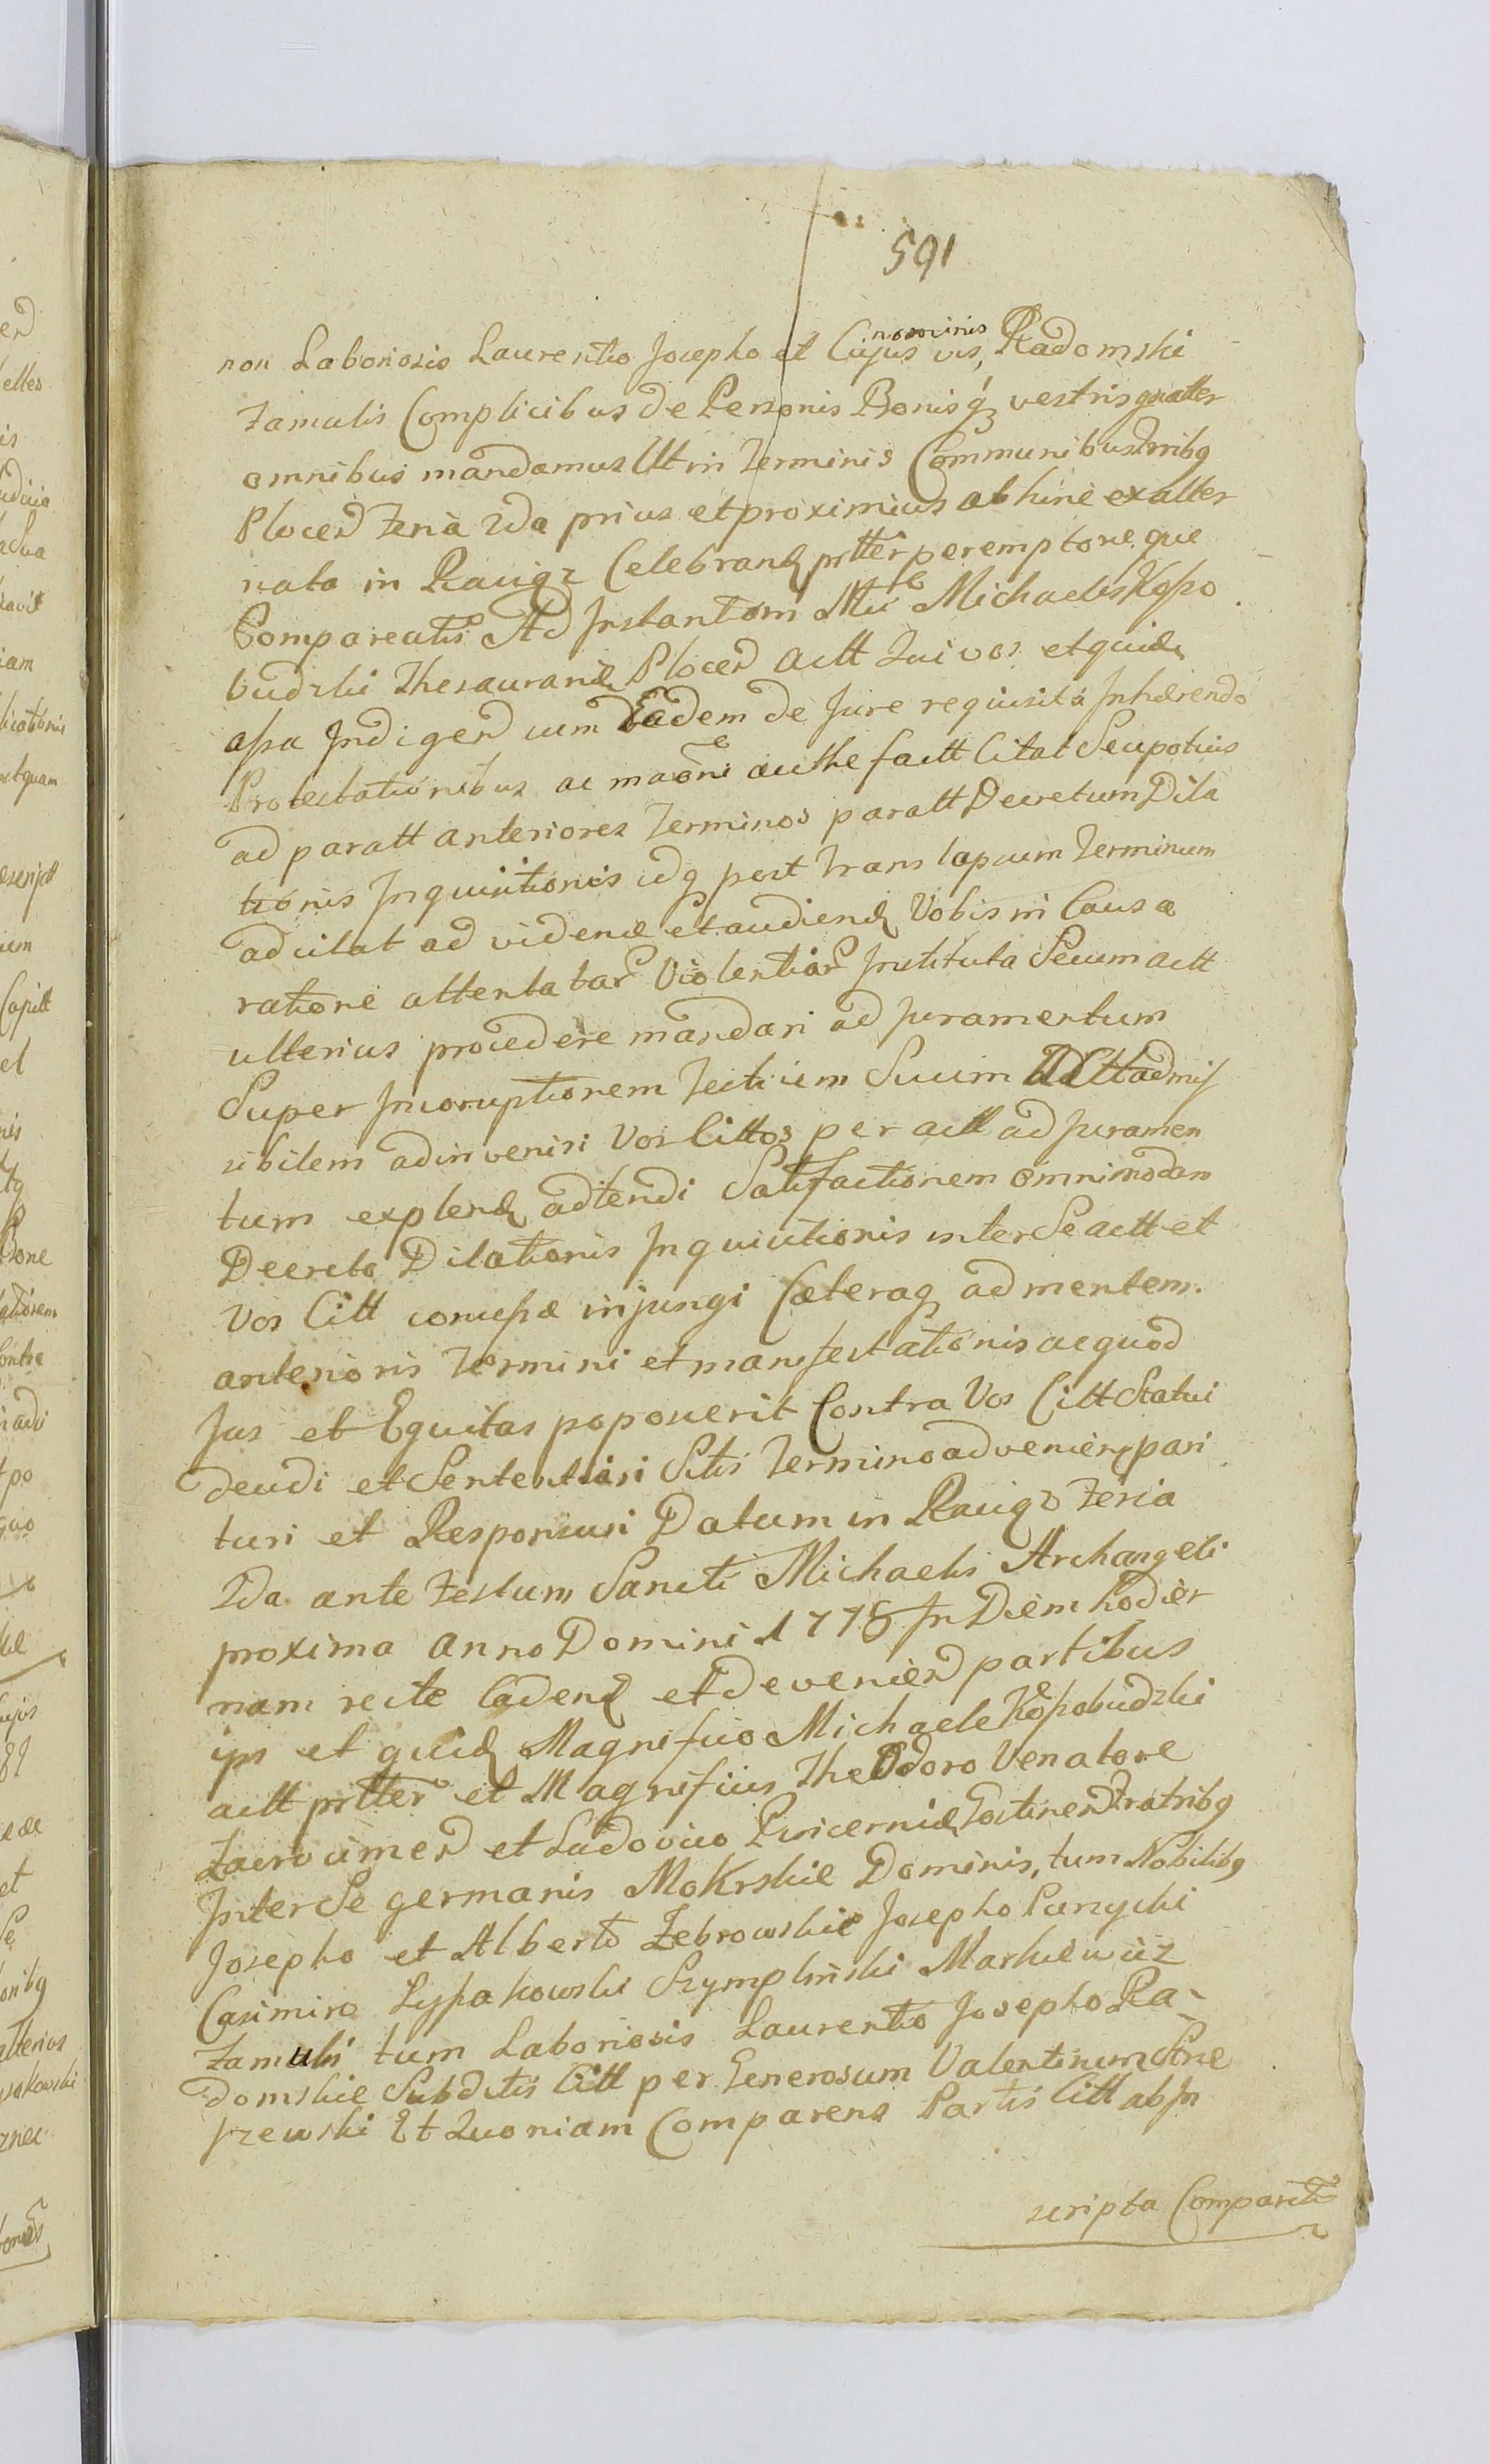 591
non Laboriosis Laurentio Josepho et Cujus vis nominis, Radomski
Famulis Complicibus de Personis Bonisq3 vestris gnalter
omnibus mandamus Ut in Terminis Communibus Trribg
Plocen Feria 2da prius et proximius ab hinc exalter
nata in Raciąz Celebrand pntter peremptorie que
Compareatis Ad Instantiam Mci Michaelis Kęsso
budzki Thesaurarie Plocen Actt Qui vos et quide
assa Indigen cum Eadem de Jure requisita Inhærendo
Protestationibus ac maõni authe factt Citat Seu potius
ad paratt anteriores Terminos paratt Decretum Dila
tionis Inquisitionis idq post translapsum Terminum
adcitat ad videnđ et audiend Vobis in Causa
ratione attentatar Violentiar Instituta Secum actt
ulterius procedere mandari ad Juramentum
Super Incoruptionem Testium Suum Actt admis
sibilem adinveniri Vos Cittos per actt ad Juramen
tum explend adtendi Satisfactionem omnimodam
Decreto Dilationis Inquisitionis inter Se actt et
Vos Citt concessæ injungi Cæteraq ad mentem
anterioris Termini et manifestationis ac quod
Jus et Equitas poposcerit Contra Vos Citt Statui
deudi et Sententiari Sitis Termino advenien pari
turi et Responsuri Datum in Raciąz Feria
2da ante Festum Sancti Michaelis Archangeli
proxima Anno Domini 1778 In Diem hodier
nam recte Cadend et devenien partibus
ips et quid Magnifico Michaele Kęssobudzki
actt pntter et Magnificis Theodoro Venatore
Zacrocimen et Ludovico Pincernie Gostinen Fratribg
Inter Se germanis Mokrskie Dominis, tum Nobilibg
Josepho et Alberto Zebrowskie Josepho Purzycki
Casimiro Lyssakowski Szymplinski Markiewicz
Famulis tum Laboriosis Laurentio Josepho Ra-
domskie Subditis Citt per Generosum Valentinum Strze
szewski Et Quoniam Comparens Partis Citt ab In
scripta Comparitis